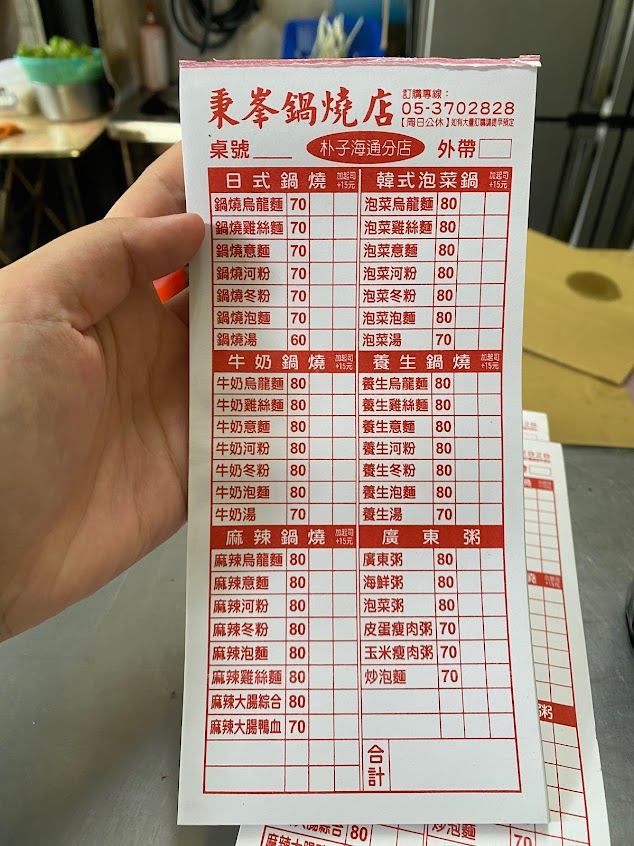 秉峯鍋燒店
訂購專線：
05-3702828
【周日公休】如有大量訂購請提早預定
桌號 朴子海通分店 外帶
日式鍋燒 加起司+15元
鍋燒烏龍麵 70
鍋燒雞絲麵 70
鍋燒意麵 70
鍋燒河粉 70
鍋燒冬粉 70
鍋燒泡麵 70
鍋燒湯 60
韓式泡菜鍋 加起司+15元
泡菜烏龍麵 80
泡菜雞絲麵 80
泡菜意麵 80
泡菜河粉 80
泡菜冬粉 80
泡菜泡麵 80
泡菜湯 70
牛奶鍋燒 加起司+15元
牛奶烏龍麵 80
牛奶雞絲麵 80
牛奶意麵 80
牛奶河粉 80
牛奶冬粉 80
牛奶泡麵 80
牛奶湯 70
養生鍋燒 加起司+15元
養生烏龍麵 80
養生雞絲麵 80
養生意麵 80
養生河粉 80
養生冬粉 80
養生泡麵 80
養生湯 70
麻辣鍋燒 加起司+15元
麻辣烏龍麵 80
麻辣意麵 80
麻辣河粉 80
麻辣冬粉 80
麻辣泡麵 80
麻辣雞絲麵 80
麻辣大腸綜合 80
麻辣大腸鴨血 70
廣東粥
廣東粥 80
海鮮粥 80
泡菜粥 80
皮蛋瘦肉粥 70
玉米瘦肉粥 70
炒泡麵 70
合計
粥
麻辣大腸綜合 80 炒泡麵 70
麻辣大腸 70